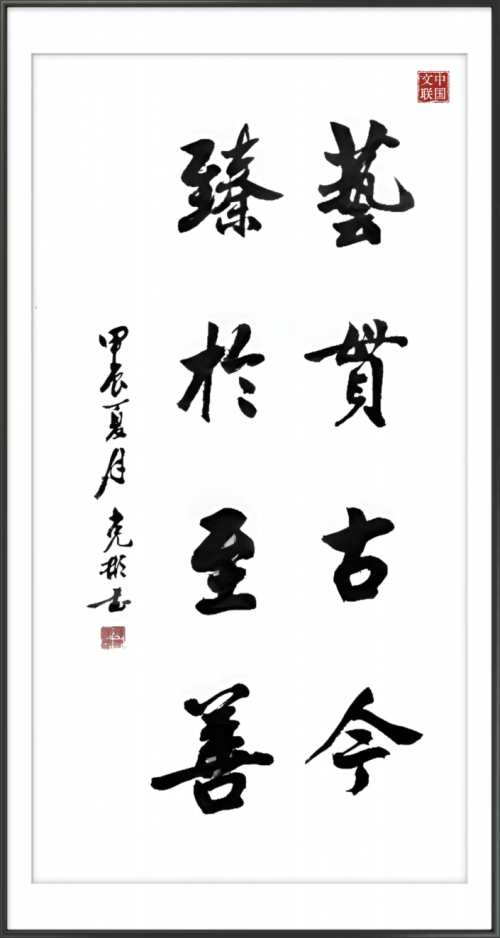 中国
文联
藝贯古今
臻於至善
甲辰夏月克彬书